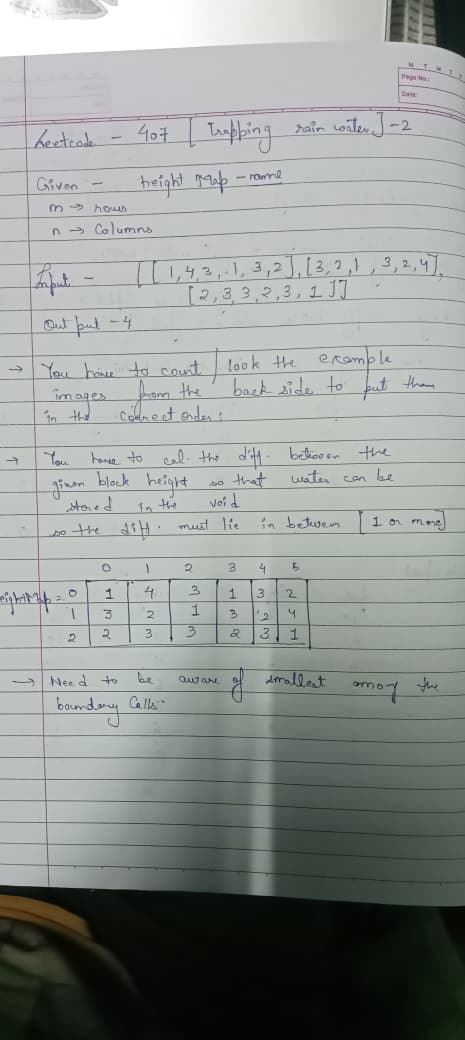 M T W T
Page No.:
Date:
Leetcode - 407 [ Trapping rain water ] - 2
Given - height Map - name
m → rows
n → Columns
Input - [ [ 1, 4, 3, 1, 3, 2 ], [ 3, 2, 1, 3, 2, 4 ],
[ 2, 3, 3, 2, 3, 1 ] ]
Out put - 4
→ You have to count / look the example
images from the back side to put them
in the correct order :
→ You have to cal. the diff. between the
given block height so that water can be
stored in the void
so the diff. must lie in betwen [ 1 or more ]
0 1 2 3 4 5
eightMap = 0 1 4 3 1 3 2
1 3 2 1 3 2 4
2 2 3 3 2 3 1
→ Need to be aware of smallest amoy the
boundary Cells.